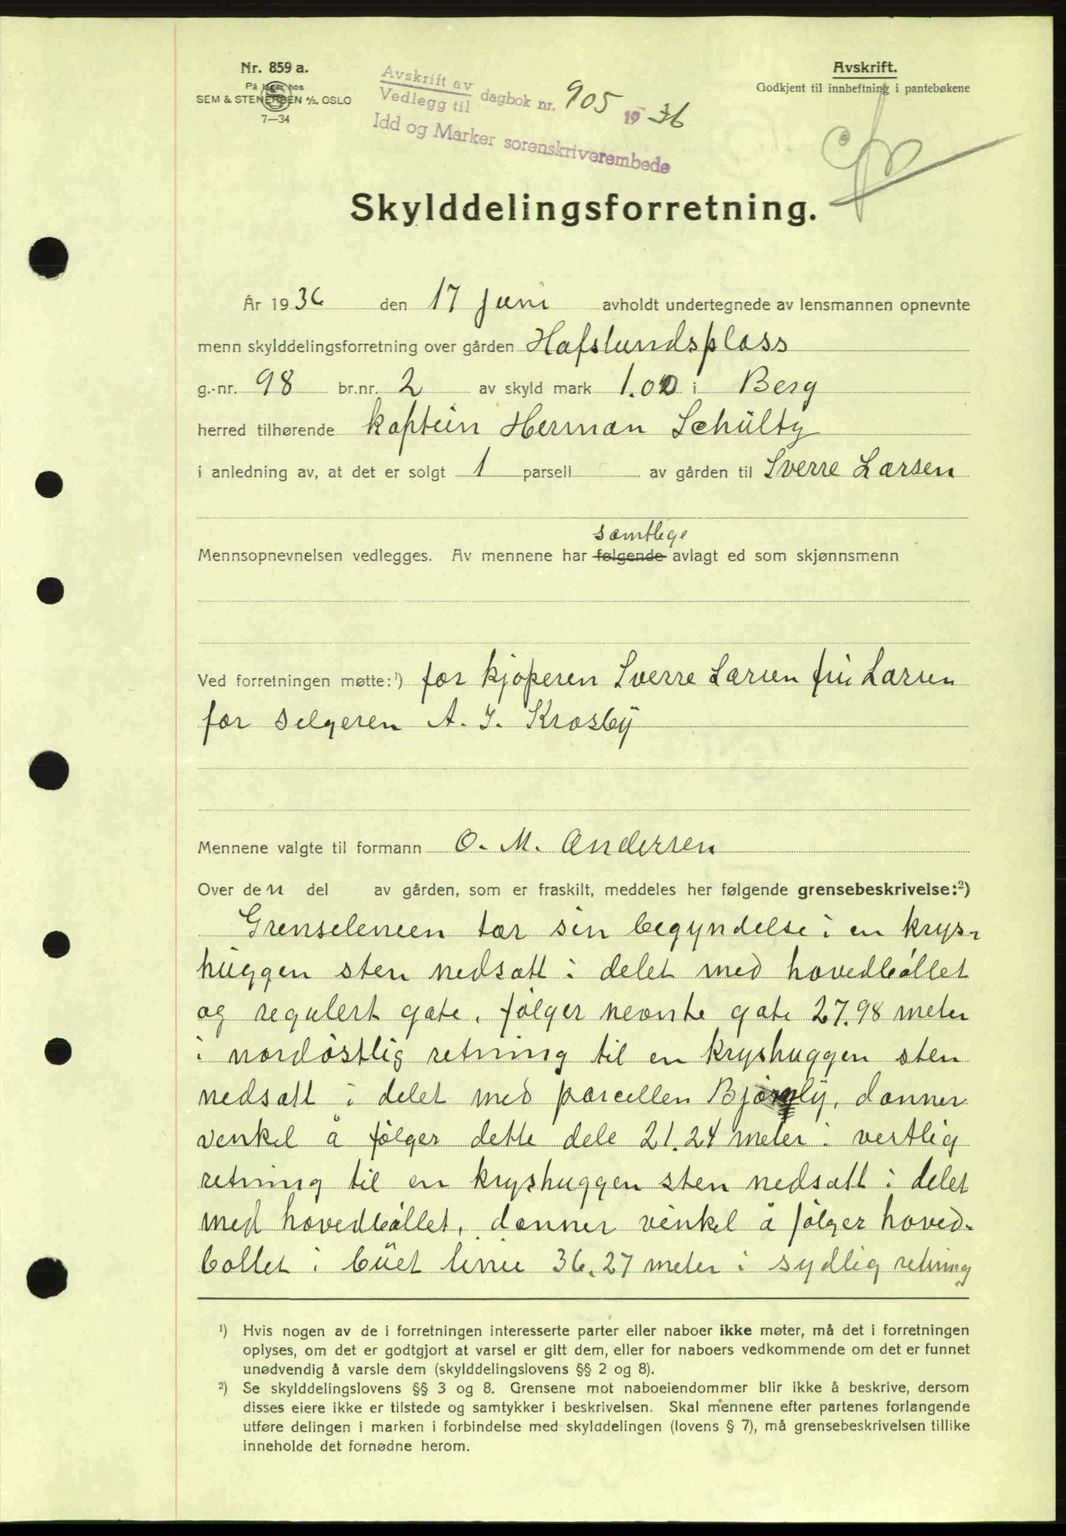 Nr. 859 a.
På lager hos
SEM & STENERSEN A/S, OSLO
7—34
Avskrift av
Vedlegg til dagbok nr. 905 19 36
Idd og Marker sorenskriverembede
Avskrift.
Godkjent til innheftning i pantebøkene
Skylddelingsforretning.
År 1936 den 17 Juni avholdt undertegnede av lensmannen opnevnte
menn skylddelingsforretning over gården Hafslundsplass
g.-nr. 98 br.nr. 2 av skyld mark 1.00 i Berg
herred tilhørende kaptein Herman Schultz
i anledning av, at det er solgt 1 parsell av gården til Sverre Larsen
samtlege
Mennsopnevnelsen vedlegges. Av mennene har følgende avlagt ed som skjønnsmenn
Ved forretningen møtte:¹) for kjøperen Sverre Larsen Larsen
for selgeren A. I. Krosby
Mennene valgte til formann O. M. Andersen
Over den del av gården, som er fraskilt, meddeles her følgende grensebeskrivelse:²)
Grenseleneen tar sin begyndelse i en krys-
huggen sten nedsatt i delet med hovedbøllet
og regulert gate, følger nevnte gate 27.98 meter
i nordøstlig retning til en kryshuggen sten
nedsatt i delet med parcellen Bjørnly, danner
venkel å følger dette dele 21.24 meter i vestlig
retning til en kryshuggen sten nedsatt i delet
med hovedbøllet, danner vinkel å følger hoved-
bøllet i büet linie 36.27 meter i sydlig retning
¹) Hvis nogen av de i forretningen interesserte parter eller naboer ikke møter, må det i forretningen
oplyses, om det er godtgjort at varsel er gitt dem, eller for naboers vedkommende om det er funnet
unødvendig å varsle dem (skylddelingslovens §§ 2 og 8).
²) Se skylddelingslovens §§ 3 og 8. Grensene mot naboeiendommer blir ikke å beskrive, dersom
disses eiere ikke er tilstede og samtykker i beskrivelsen. Skal mennene efter partenes forlangende
utføre delingen i marken i forbindelse med skylddelingen (lovens § 7), må grensebeskrivelsen tillike
inneholde det fornødne herom.